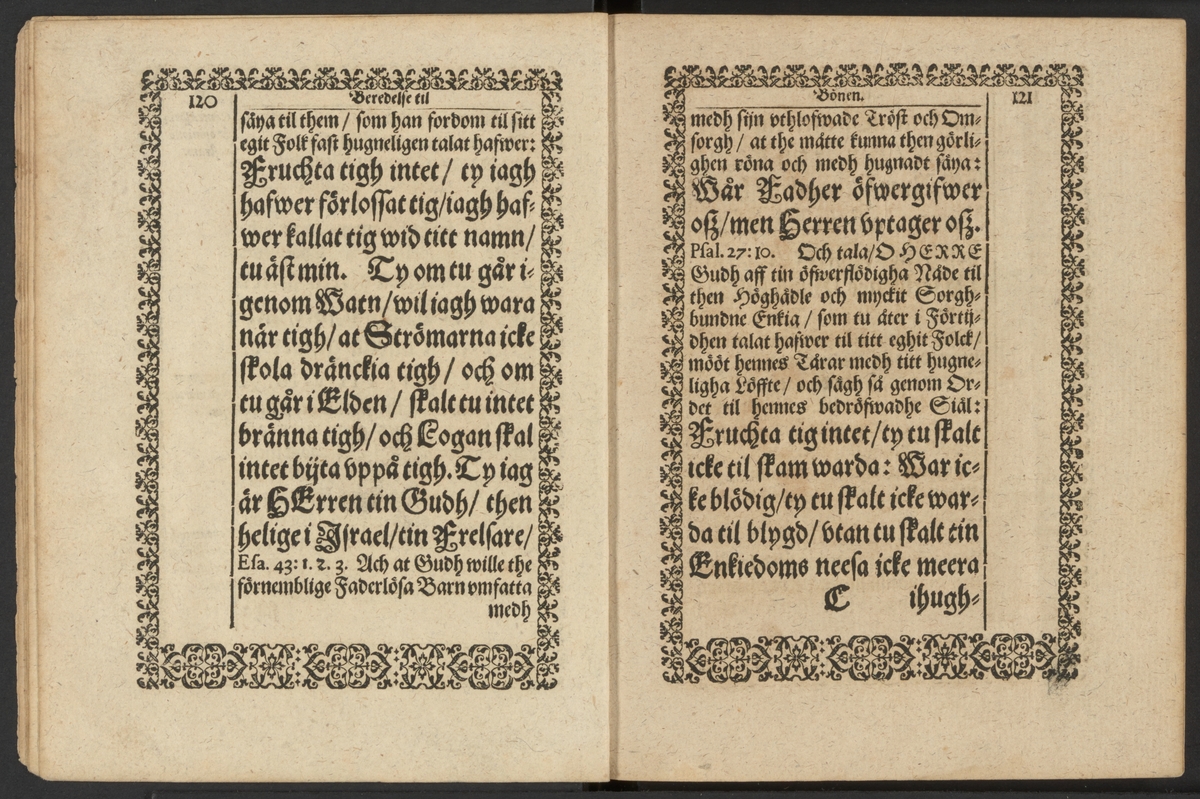 120
Beredelse til
säya til them / som han fordom til sitt
egit Folk fast hugneligen talat hafwer:
Fruchta tigh intet / ty iagh
hafwer förlossat tig/iagh haf-
wer kallat tig wid titt namn/
tu äst min. Ty om tu går i-
genom Watn/wil iagh wara
när tigh/ at Strömarna icke
skola dränckia tigh / och om
tu går i Elden / skalt tu intet
bränna tigh/ och Logan skal
intet bijta vppå tigh. Ty iag
är HErren tin Gudh/ then
helige i Jsrael/tin Frelsare/
Esa. 43: 1. 2. 3. Ach at Gudh wille the
förnemblige Faderlösa Barn vmfatta
medh
Bönen.
121
medh sijn vthlofwade Tröst och Om-
sorgh / at the måtte kunna then görli-
ghen röna och medh hugnadt säya:
Wår Fadher öfwergifwer
oß/men Herren vptager oß.
Psal. 27: 10. Och tala/O HERRE
Gudh aff tin öfwerflödigha Nåde til
then Höghädle och myckit Sorgh-
bundne Enkia / som tu åter i Förtij-
dhen talat hafwer til titt eghit Folck/
mööt hennes Tårar medh titt hugne-
ligha Löffte / och sägh så genom Or-
det til hennes bedröfwadhe Siäl:
Fruchta tig intet/ty tu skalt
icke til skam warda: War ic-
ke blödig/ty tu skalt icke war-
da til blygd/ vtan tu skalt tin
Enkiedoms neesa icke meera
C ihugh-